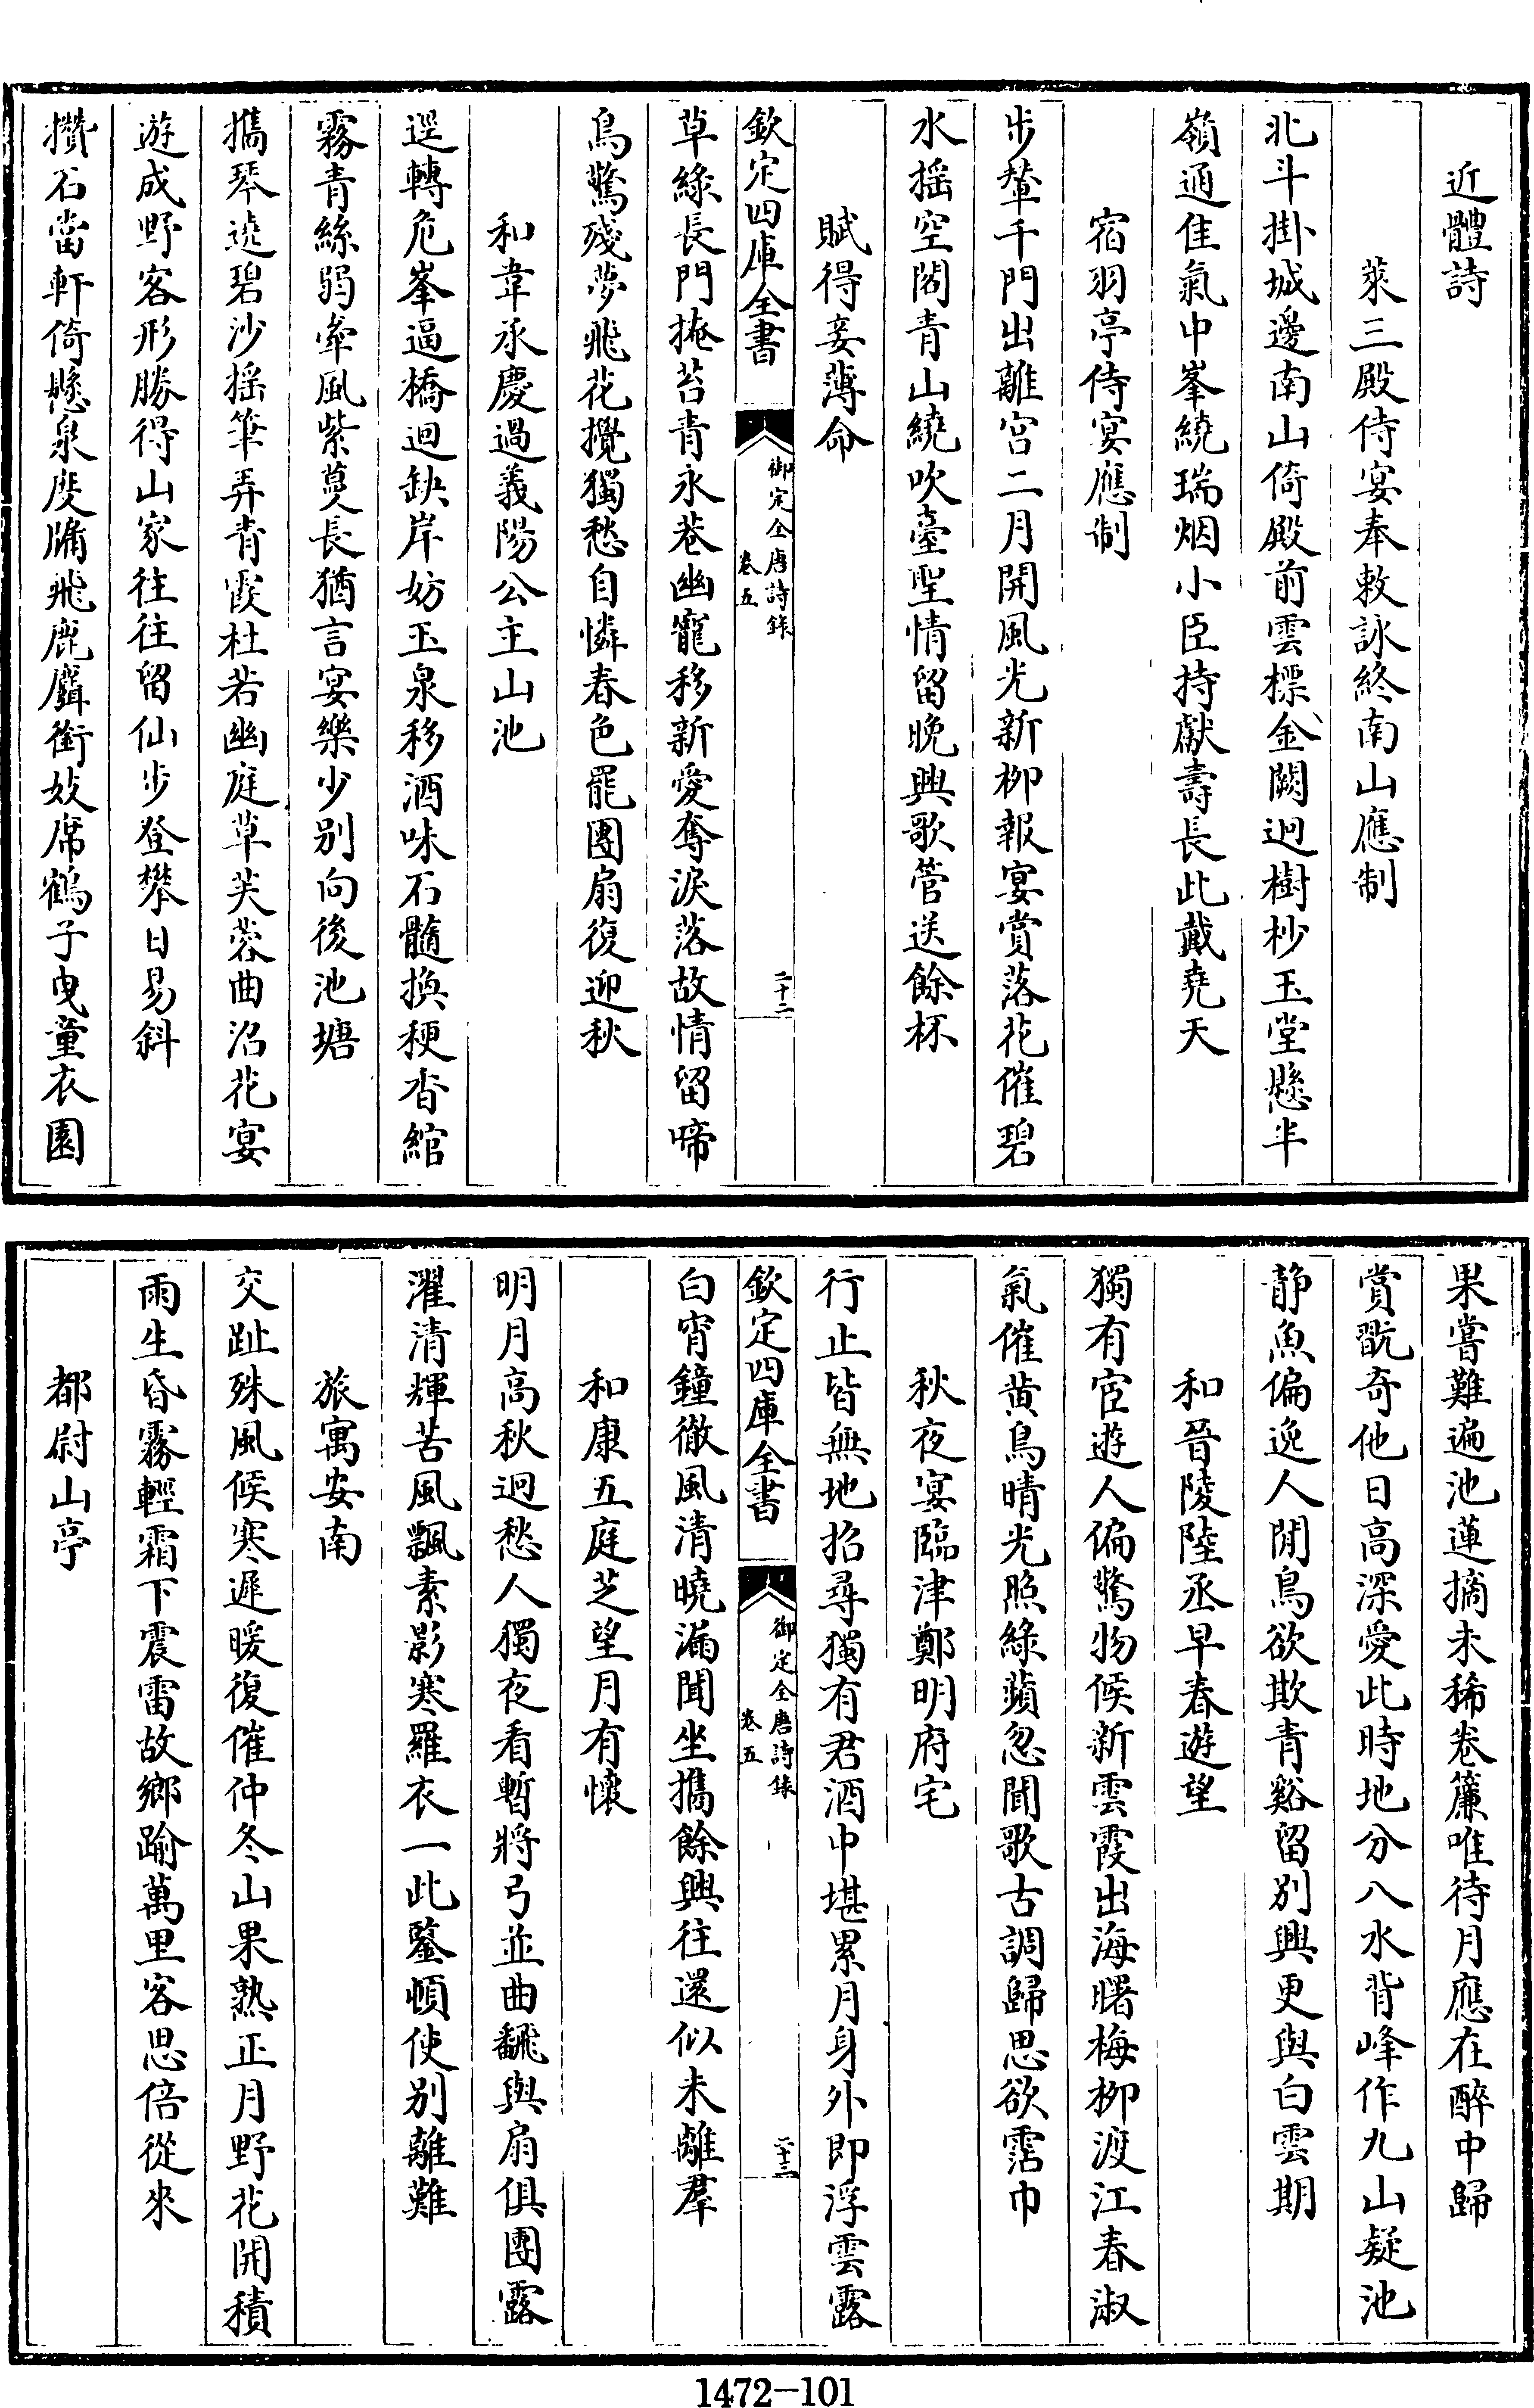 近體詩
萊三殿侍宴奉敕詠終南山應制
北斗掛城邊南山倚殿前雲標金闕迥樹杪玉堂懸半
嶺通佳氣中峯繞瑞烟小臣持獻壽長此戴堯天
宿羽亭侍宴應制
步輦千門出離宮二月開風光新柳報宴賞落花催碧
水摇空閣青山繞吹臺聖情留晚興歌管送餘杯
賦得妾薄命
欽定四庫全書
御定全唐詩錄
卷五
二十二
草綠長門掩苔青永巷幽寵移新愛奪淚落故情留啼
鳥驚殘夢飛花攪獨愁自憐春色罷團扇復迎秋
和韋承慶過義陽公主山池
逕轉危峯逼橋迴缺岸妨玉泉移酒味石髓換稉香綰
霧青絲弱牽風紫蔓長猶言宴樂少别向後池塘
攜琴遶碧沙摇筆弄青霞杜若幽庭草芙蓉曲沼花宴
遊成野客形勝得山家往往留仙步登攀日易斜
攢石當軒倚懸泉度牖飛鹿麛銜妓席鶴子曳童衣園
果嘗難遍池蓮摘未稀卷簾唯待月應在醉中歸
賞翫奇他日高深愛此時地分八水背峰作九山疑池
静魚偏逸人閒鳥欲欺青谿留别興更與白雲期
和晉陵陸丞早春遊望
獨有宦遊人偏驚物候新雲霞出海曙梅柳渡江春淑
氣催黄鳥晴光照綠蘋忽聞歌古調歸思欲霑巾
秋夜宴臨津鄭明府宅
行止皆無地招尋獨有君酒中堪累月身外即浮雲露
欽定四庫全書
御定全唐詩錄
卷五
二十三
白宵鐘徹風清曉漏聞坐攜餘興往還似未離羣
和康五庭芝望月有懷
明月高秋迥愁人獨夜看暫將弓並曲飜與扇俱團露
濯清輝苦風飄素影寒羅衣一此鑒頓使别離難
旅寓安南
交趾殊風候寒遲暖復催仲冬山果熟正月野花開積
雨生昏霧輕霜下震雷故鄉踰萬里客思倍從來
都尉山亭
1472-101